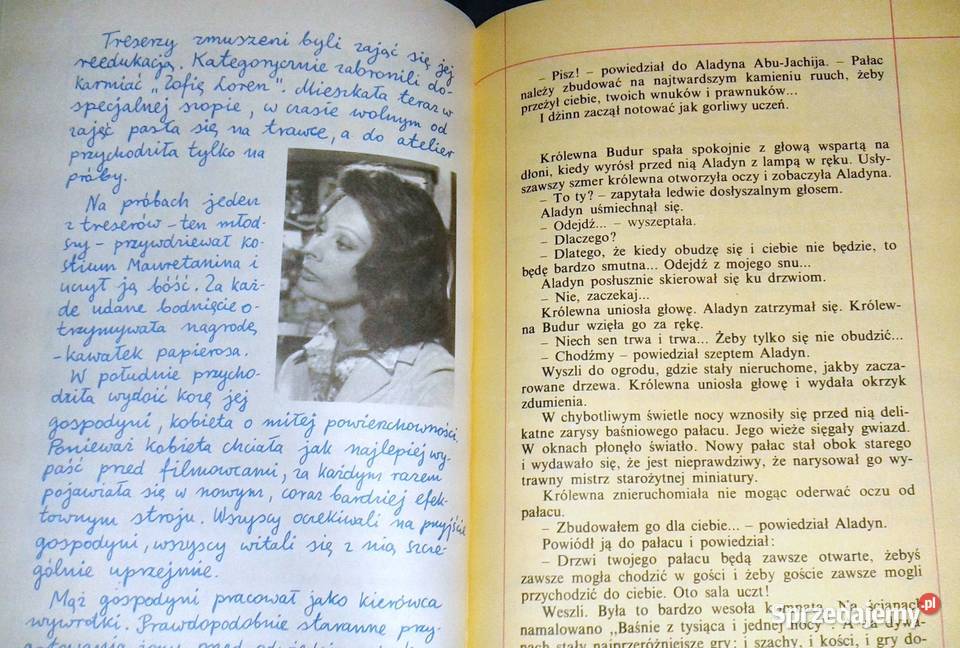 Treserzy zmuszeni byli zająć się jej
reedukacją. Kategorycznie zabronili do-
karmiać „Zofię Loren". Mieszkała teraz w
specjalnej szopie, w czasie wolnym od
zajęć pasła się na trawce, a do atelier
przychodziła tylko na
próby.
Na próbach jeden
z treserów – ten młod-
szy – przywdziewał ko-
stium Mauretanina i
uczył ją bóść. Za każ-
de udane bodnięcie o-
trzymywała nagrodę
– kawałek papierosa.
W południe przycho-
dziła wydoić kozę jej
gospodyni, kobieta o miłej powierzchowności.
Ponieważ kobieta chciała jak najlepiej wy-
paść przed filmowcami, za każdym razem
pojawiała się w nowym, coraz bardziej efek-
townym stroju. Wszyscy oczekiwali na przyjście
gospodyni, wszyscy witali się z nią szcze-
gólnie uprzejmie.
Mąż gospodyni pracował jako kierowca
wywrotki. Prawdopodobnie staranne przy-
– Pisz! – powiedział do Aladyna Abu-Jachija. – Pałac
należy zbudować na najtwardszym kamieniu ruuch, żeby
przeżył ciebie, twoich wnuków i prawnuków...
I dżinn zaczął notować jak gorliwy uczeń.
Królewna Budur spała spokojnie z głową wspartą na
dłoni, kiedy wyrósł przed nią Aladyn z lampą w ręku. Usły-
szawszy szmer królewna otworzyła oczy i zobaczyła Aladyna.
– To ty? – zapytała ledwie dosłyszalnym głosem.
Aladyn uśmiechnął się.
– Odejdź... – wyszeptała.
– Dlaczego?
– Dlatego, że kiedy obudzę się i ciebie nie będzie, to
będę bardzo smutna... Odejdź z mojego snu...
Aladyn posłusznie skierował się ku drzwiom.
– Nie, zaczekaj...
Królewna uniosła głowę. Aladyn zatrzymał się. Królew-
na Budur wzięła go za rękę.
– Niech sen trwa i trwa... Żeby tylko się nie obudzić...
– Chodźmy – powiedział szeptem Aladyn.
Wyszli do ogrodu, gdzie stały nieruchome, jakby zacza-
rowane drzewa. Królewna uniosła głowę i wydała okrzyk
zdumienia.
W chybotliwym świetle nocy wznosiły się przed nią deli-
katne zarysy baśniowego pałacu. Jego wieże sięgały gwiazd.
W oknach płonęło światło. Nowy pałac stał obok starego
i wydawało się, że jest nieprawdziwy, że narysował go wy-
trawny mistrz starożytnej miniatury.
Królewna znieruchomiała nie mogąc oderwać oczu od
pałacu.
– Zbudowałem go dla ciebie... – powiedział Aladyn.
Powiódł ją do pałacu i powiedział:
– Drzwi twojego pałacu będą zawsze otwarte, żebyś
zawsze mogła chodzić w gości i żeby goście zawsze mogli
przychodzić do ciebie. Oto sala uczt!
Weszli. Była to bardzo wesoła komnata. Na ścianach
namalowano „Baśnie z tysiąca i jednej nocy". A na dywa-
nach stały najprzeróżniejsze gry: i szachy, i kości, i gry do-
Sprzedajemy.pl